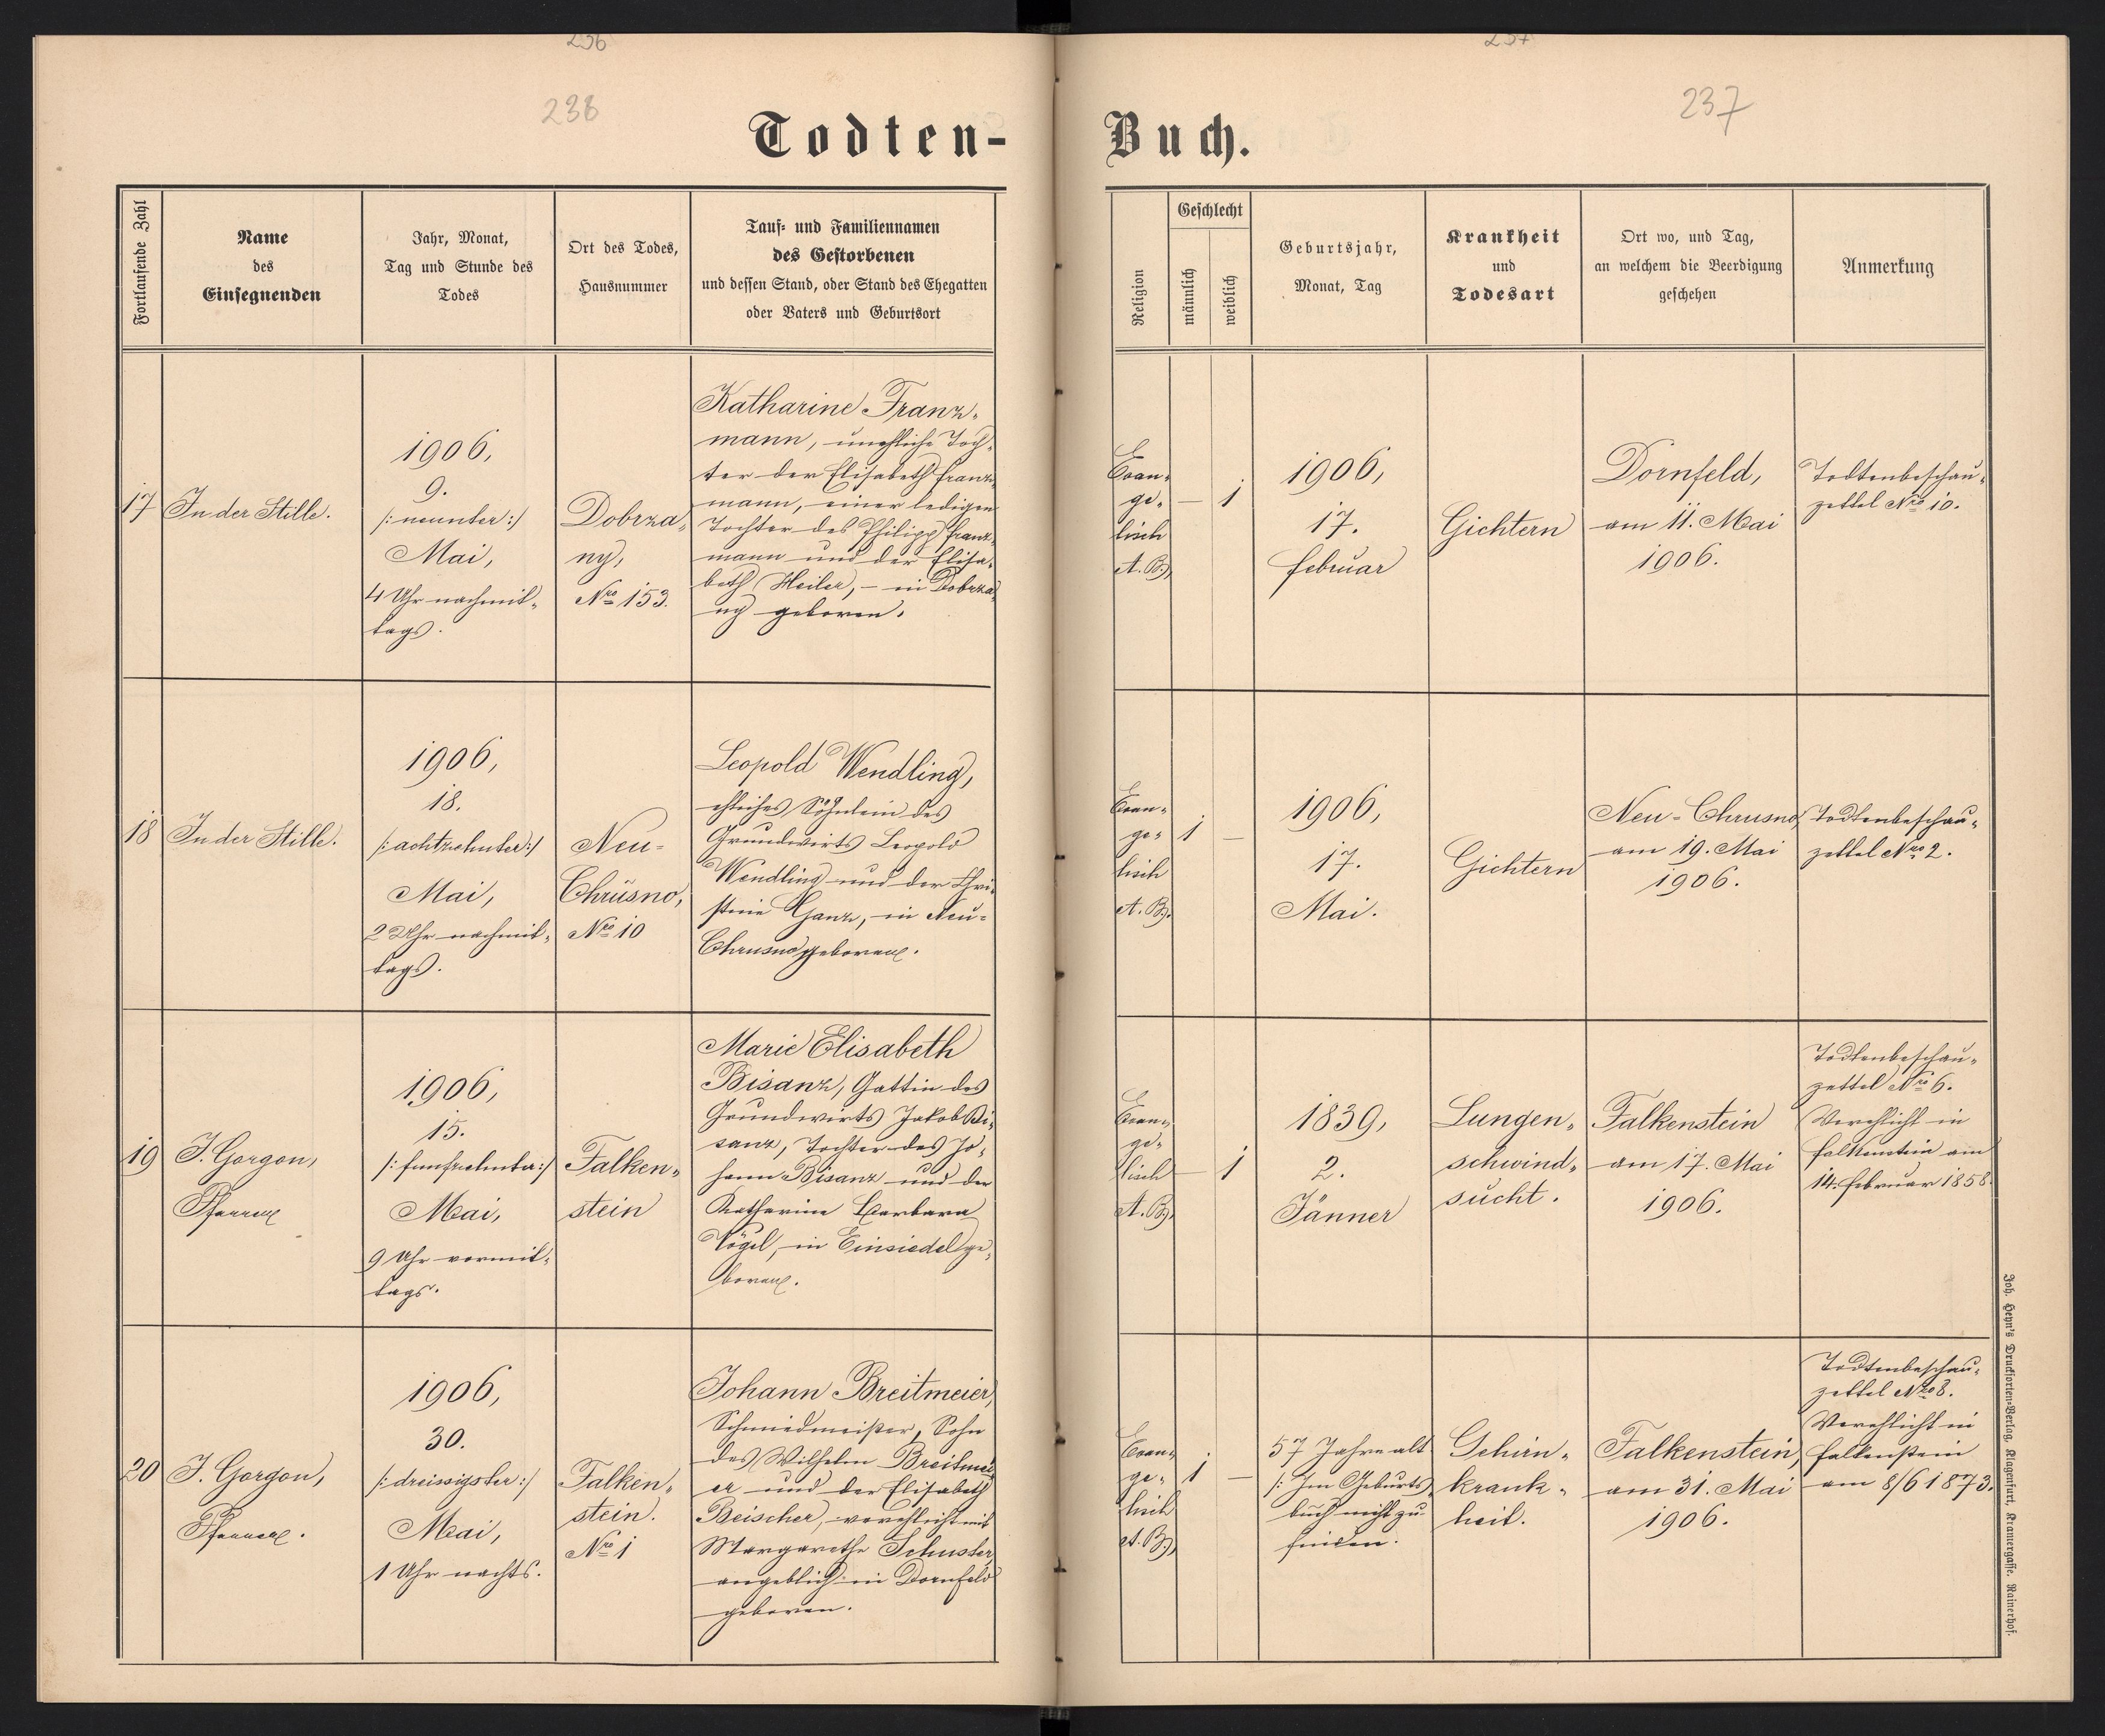 236
237
238
237
Todten-
Buch.
Fortlaufende Zahl
Name
des
Einsegnenden
Jahr, Monat,
Tag und Stunde des
Todes
Ort des Todes,
Hausnummer
Tauf- und Familiennamen
des Gestorbenen
und dessen Stand, oder Stand des Ehegatten
oder Vaters und Geburtsort
Religion
Geschlecht
männlich
weiblich
Geburtsjahr,
Monat, Tag
Krankheit
und
Todesart
Ort wo, und Tag,
an welchem die Beerdigung
geschehen
Anmerkung
17
In der Stille.
1906,
9.
/: neunter :/
Mai,
4 Uhr nachmit-
tags.
Dobrza-
ny,
Nro 153.
Katharine Franz-
mann, unehliche Toch-
ter der Elisabeth Franz-
mann, einer ledigen
Tochter des Philipp Franz-
mann und der Elisa-
beth Heiler, – in Dobrza-
ny geboren.
Evan-
ge-
lisch
A. B.
—
1
1906,
17.
Februar
Gichtern
Dornfeld,
am 11. Mai
1906.
Todtenbeschau-
zettel Nro 10.
18
In der Stille.
1906,
18.
/: achtzehnter :/
Mai,
2 Uhr nachmit-
tags.
Neu-
Chrusno,
Nro 10
Leopold Wendling,
ehliches Söhnlein des
Grundwirts Leopold
Wendling und der Chri-
stine Ganz, in Neu-
Chrusno geboren.
Evan-
ge-
lisch
A. B.
1
—
1906,
17.
Mai.
Gichtern
Neu-Chrusno,
am 19. Mai
1906.
Todtenbeschau-
zettel Nro 2.
19
J. Gorgon,
Pfarrer
1906,
15.
/: funfzehnter :/
Mai,
9 Uhr vormit-
tags.
Falken-
stein
Marie Elisabeth
Bisanz, Gattin des
Grundwirts Jakob Bi-
sanz, Tochter des Jo-
hann Bisanz und der
Katharine Barbara
Vögel, in Einsiedel ge-
boren.
Evan-
ge-
lisch
A. B.
—
1
1839,
2.
Jänner
Lungen-
schwind-
sucht.
Falkenstein
am 17. Mai
1906.
Todtenbeschau-
zettel Nro 6.
Verehlicht in
Falkenstein am
14. Februar 1858.
20
J. Gorgon,
Pfarrer.
1906,
30.
/: dreissigster :/
Mai,
1 Uhr nachts.
Falken-
stein.
Nro 1
Johann Breitmeier,
Schmiedmeister, Sohn
des Wilhelm Breitmei-
er und der Elisabeth
Beischer, verehlicht mit
Margarethe Schuster,
angeblich in Dornfeld
geboren.
Evan-
ge-
lisch
A. B.
1
—
57 Jahre alt
/: Im Geburts-
buch nicht zu
finden.
Gehirn-
krank-
heit.
Falkenstein,
am 31. Mai
1906.
Todtenbeschau-
zettel Nro 8.
Verehlicht in
Falkenstein
am 8/6 1873.
Joh. Heyn's Drucksorten-Verlag, Klagenfurt, Kramergasse, Rainerhof.